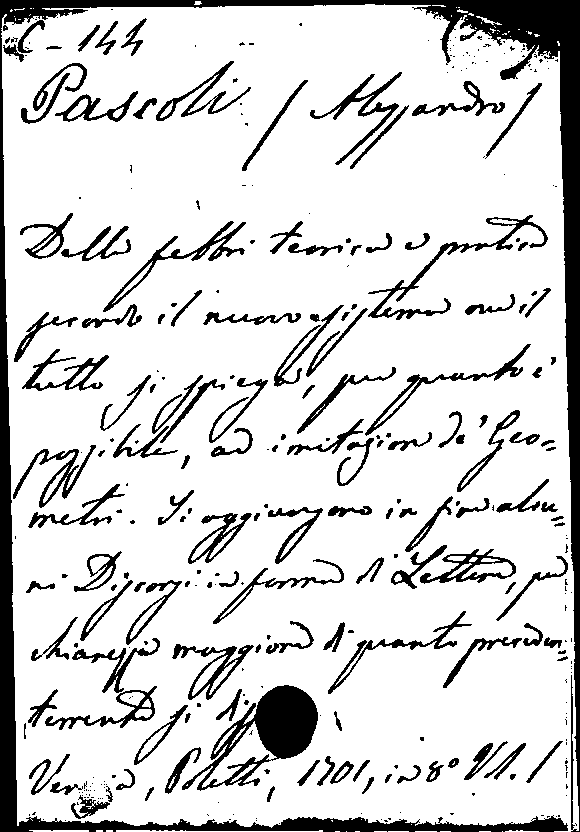 C - 144
Pascoli / Alessandro /
Delle febbri teorica e pratica
secondo il nuovo sistema ove il
tutto si spiega, per quanto è
possibile, ad imitazion de' Geo=
metri. Si aggiungono in fine alcu=
ni Discorsi in forma di Lettera, per
chiarezza maggiore di quanto preceden=
temente si dis
Venezia, Poletti, 1701, in 8º